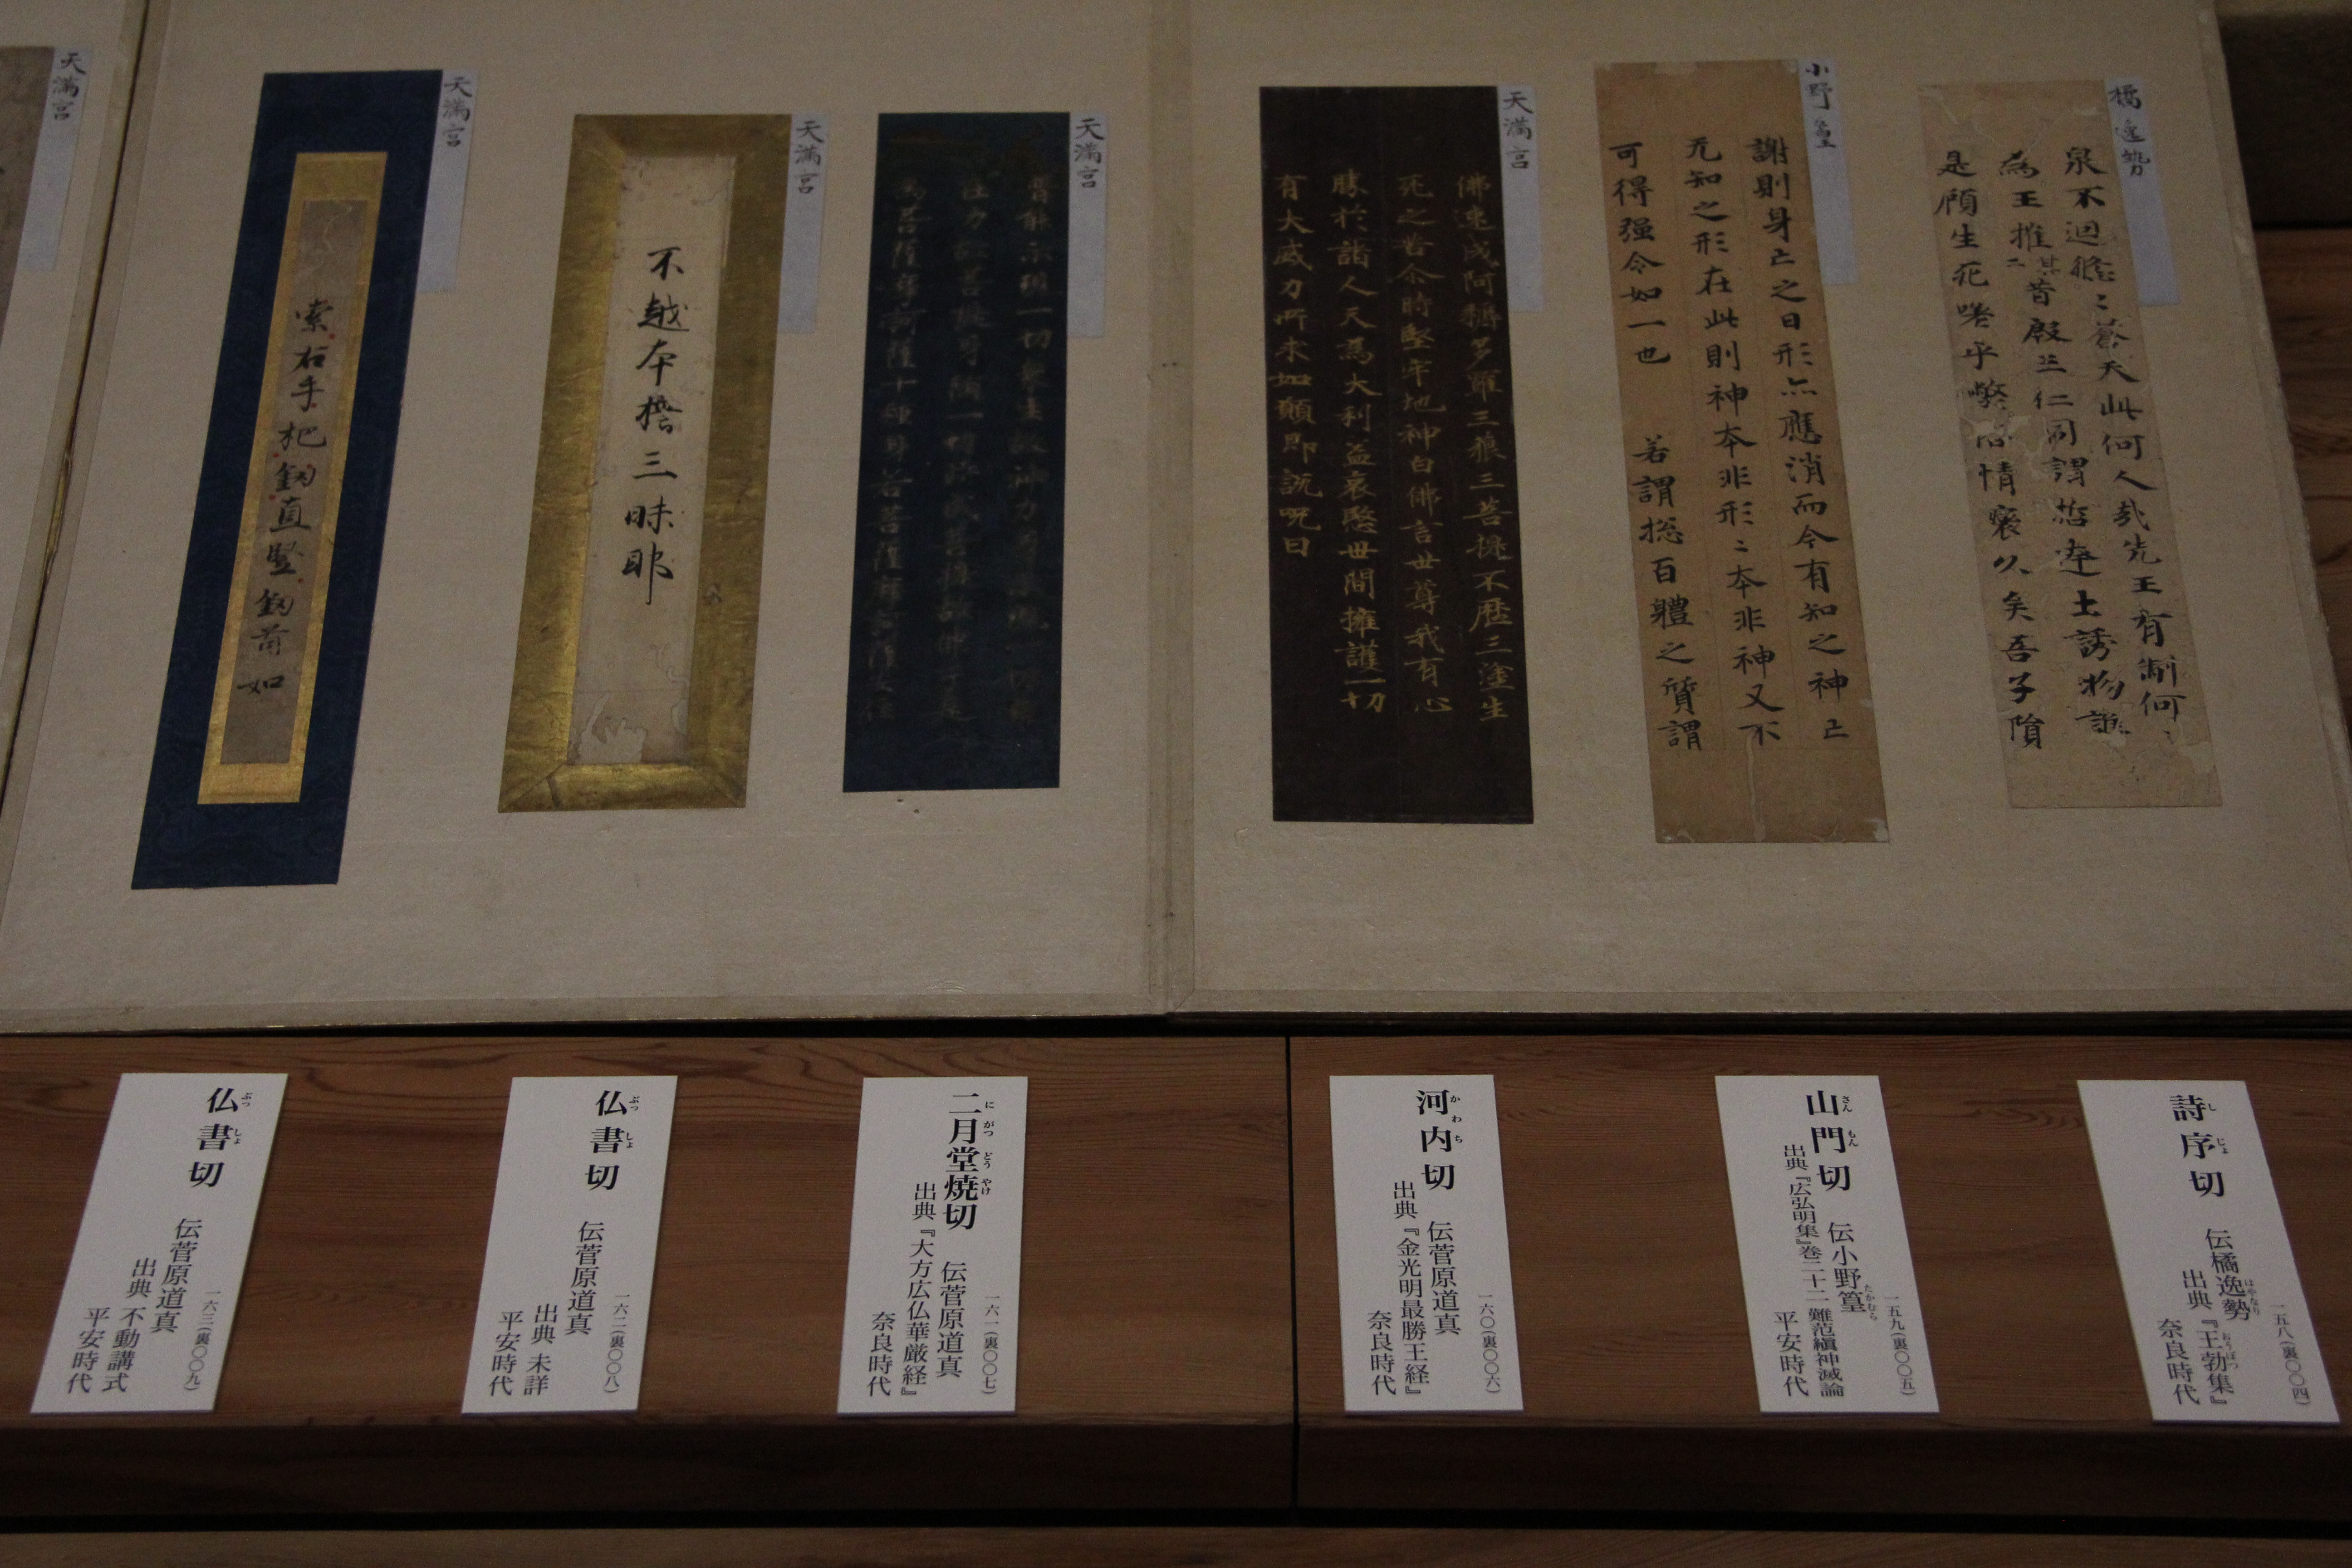 橘逸勢
泉不廻瞻〻蒼天此何人哉先王有制何
為王推其二昔殷三仁同謂
土誘物誰
是顧生死嗟乎
情
久矣吾子隕
小野篁
謝則身亡之日形亦應消而今有知之神亡
无知之形在此則神本非形〻本非神又不
可得强令如一也　若謂捴百體之質謂
天満宮
佛速成阿耨多羅三藐三菩提不歷三塗生
死之苦尒時堅牢地神白佛言世尊我有心
勝於諸人天為大利益哀愍世間擁護一切
有大威力所求如願即說呪曰
天満宮
一切衆生
天満宮
不越本擔三昧耶
天満宮
索右手把釼直竪釼首如
天満宮
詩序切　伝橘逸勢
し じょ
はやなり
出典『王勃集』
おうぼつ
奈良時代
一五八(裏〇〇四)
山門切　伝小野篁
さんもん
たかむら
出典『広弘明集』巻二十二 難范縝神滅論
平安時代
一五九(裏〇〇五)
河内切　伝菅原道真
かわち
出典『金光明最勝王経』
奈良時代
一六〇(裏〇〇六)
二月堂焼切　伝菅原道真
にがつどうやけ
出典『大方広仏華厳経』
奈良時代
一六一(裏〇〇七)
仏書切　伝菅原道真
ぶっしょ
出典 未詳
平安時代
一六二(裏〇〇八)
仏書切　伝菅原道真
ぶっしょ
出典 不動講式
平安時代
一六三(裏〇〇九)